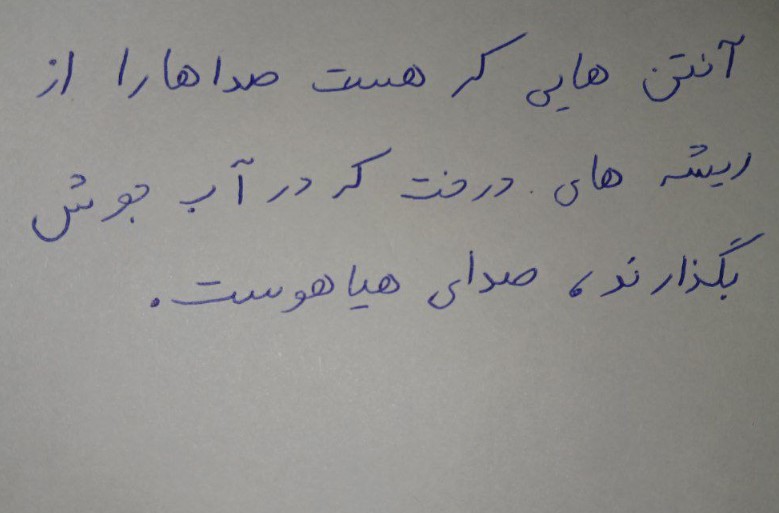 آنتن هایی که هست صداها را از
ریشه های درخت که در آب جوش
بگذارند، صدای هیاهوست.